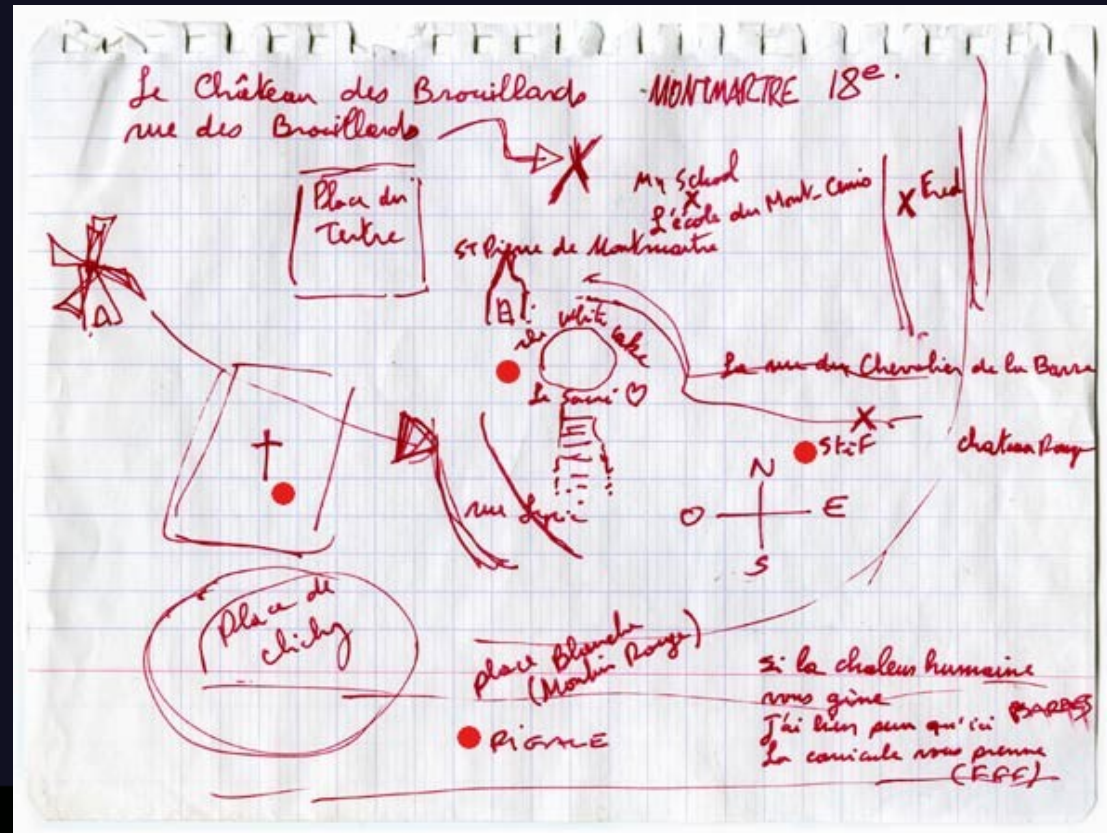 Le Château des Brouillards MONTMARTRE 18e.
rue des Brouillards
Place du
Tertre
My School
X
L'école du Mont-Cenis
X Fred
ST Pierre de Montmartre
the white cake
Le Sacré ♡
La rue du Chevalier de la Barre
X
Stef
chateau Rouge
N
O E
S
rue
Place de
clichy
place Blanche
(Moulin Rouge)
PIGALLE
Si la chaleur humaine
vous gène
BARBES
J'ai bien peur qu'ici
La canicule vous prenne
(EFF)